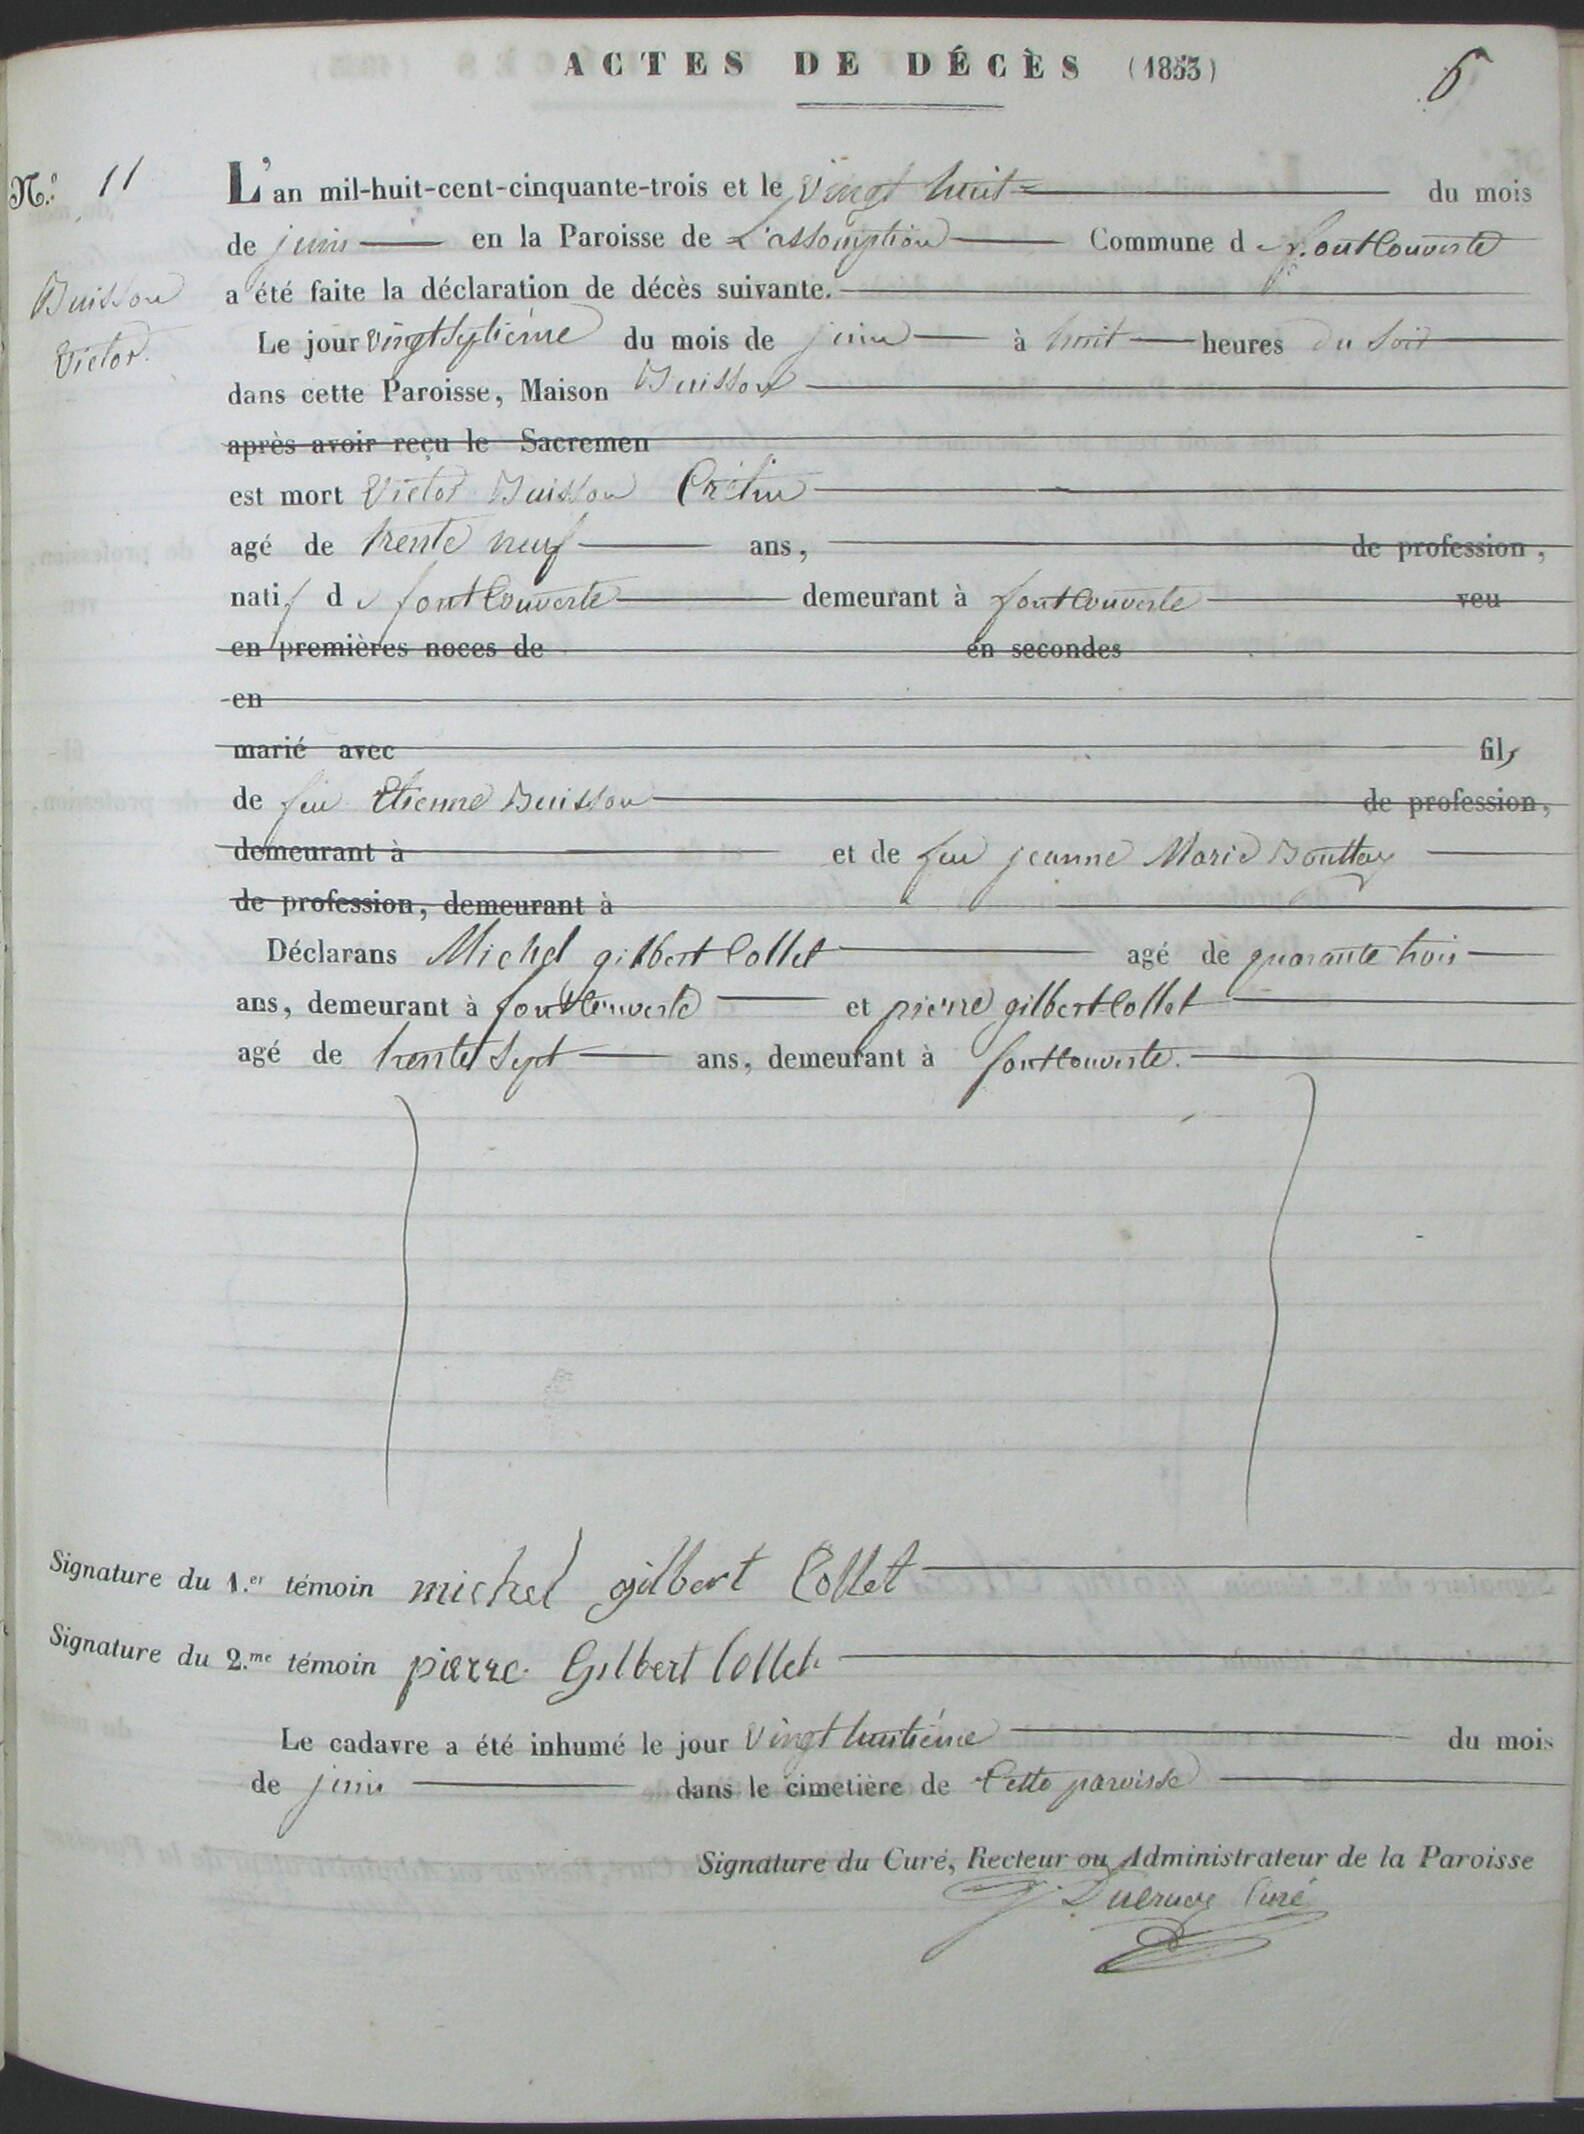 ACTES DE DÉCÈS (1853)
6
N.º 11
L'an mil-huit-cent-cinquante-trois et le vingt huit du mois
de juin en la Paroisse de L'assomption Commune de fontcouverte
a été faite la déclaration de décès suivante.
Buisson
Victor.
Le jour vingt septième du mois de juin à huit heures du soir
dans cette Paroisse, Maison Buisson
après avoir reçu le Sacremen
est mort Victor Buisson Crétin
agé de trente neuf ans, de profession,
natif de fontcouverte demeurant à fontcouverte veu
en premières noces de en secondes
en
marié avec fils
de feu Etienne Buisson de profession,
demeurant à et de feu jeanne Marie Bouttaz
de profession, demeurant à
Déclarans Michel gilbert Collet agé de quarante trois
ans, demeurant à fontcouverte et pierre gilbert Collet
agé de trente sept ans, demeurant à fontcouverte.
Signature du 1.er témoin michel gilbert Collet
Signature du 2.me témoin pierre Gilbert Collet
Le cadavre a été inhumé le jour vingt huitième du mois
de juin dans le cimetière de cette paroisse
Signature du Curé, Recteur ou Administrateur de la Paroisse
Curé